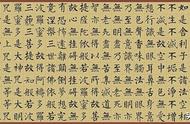 如是舍利子是諸法空相
不生不滅不垢不淨不增
不減是故空中無色無受
想行識無眼耳鼻舌身意
無色聲香味觸法無眼界
乃至無意識界無無明亦
無無明盡乃至無老死亦
無老死盡無苦集滅道無
智亦無得以無所得故菩
提薩埵依般若波羅蜜多
故心無罣礙無罣礙故無
有恐怖遠離顛倒夢想究
竟涅槃三世諸佛依般若
波羅蜜多故得阿耨多羅
三藐三菩提故知般若波
羅蜜多是大神咒是大明
咒是無上咒是無等